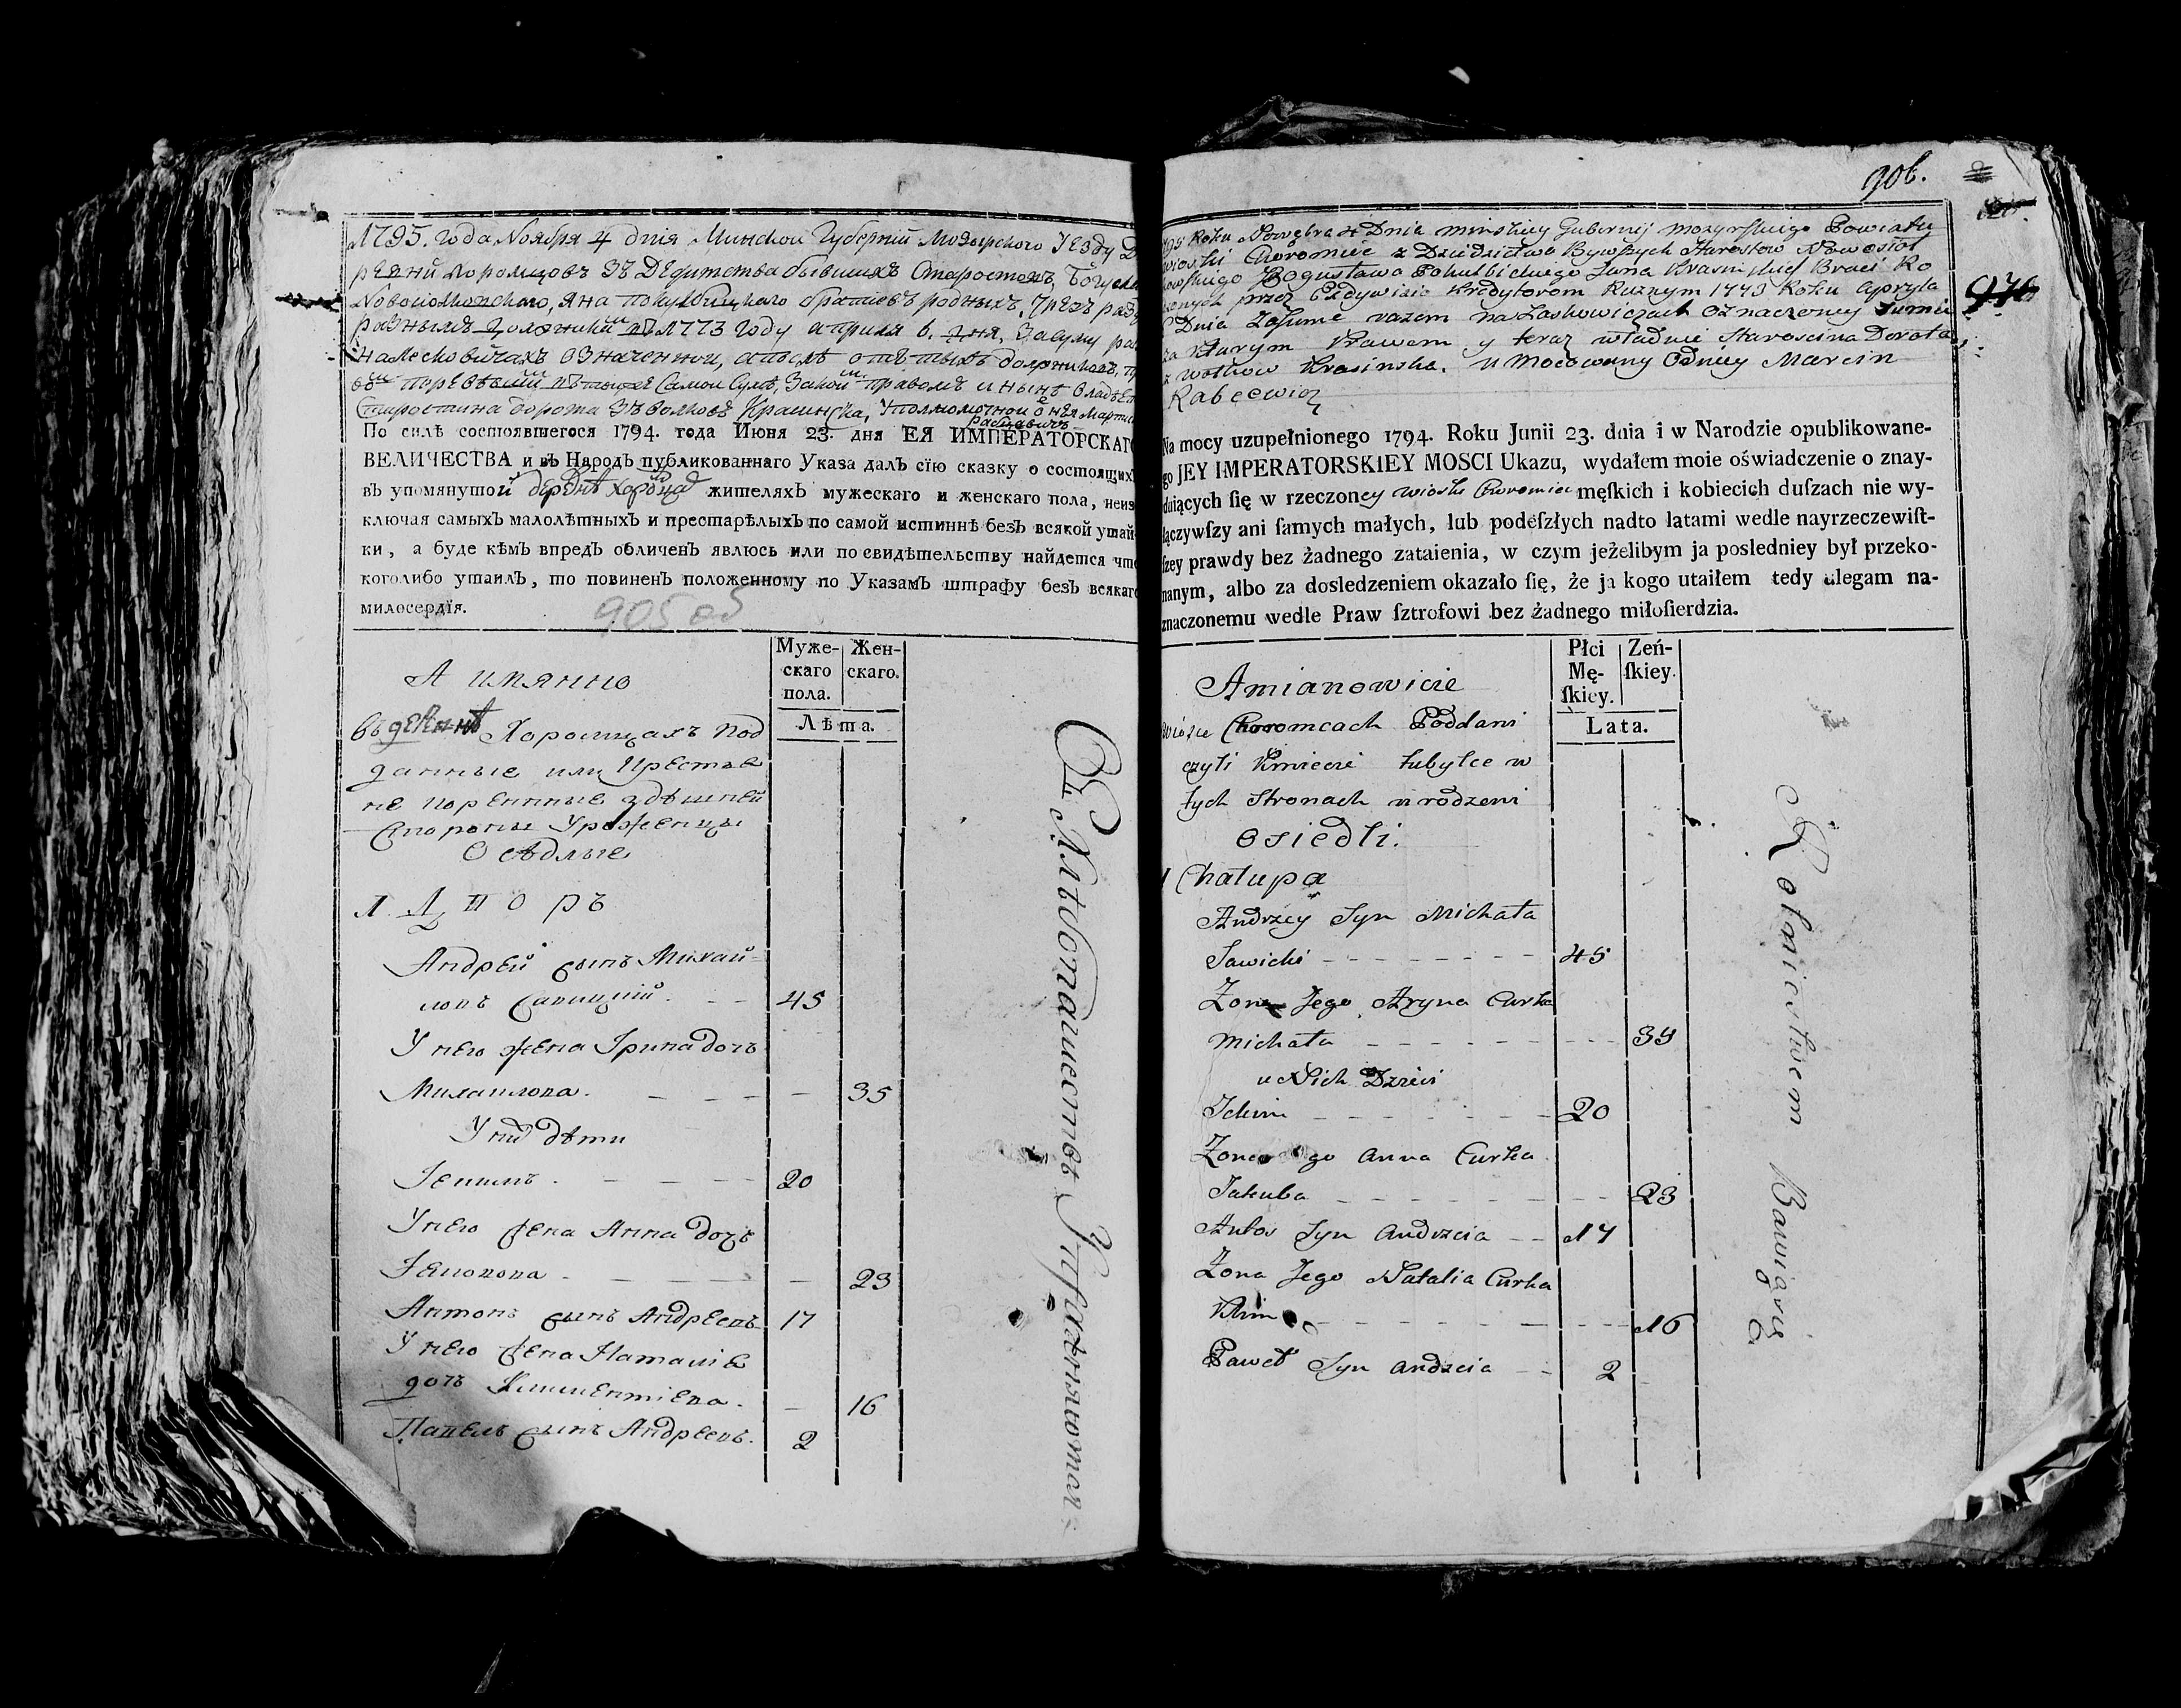 1795. года Ноября 4 дня Минской Губерній Мозырского Уезду Д
ревни Хоромцовъ зъ Дедитства бывшихъ Старостовъ, Богусла
Новополковского, Яна братіевъ родныхъ, чрезъ разд
разнымъ должникам 1773 году априля 6. дня, За суму раз
на Лесковичахъ означенной, а после отъ тыхъ должниковъ, пр
Самой Суме, Закой правомъ и ныне Владеет
Старостина дорота зъ волковъ Красинска, Уполномочной о нея Мартин
Рабцевичъ
По силѣ состоявшегося 1794. года Июня 23. дня ЕЯ ИМПЕРАТОРСКАГО
ВЕЛИЧЕСТВА и въ НародЪ публикованнаго Указа далЪ сїю сказку о состоящихЪ
въ упомянутой деревне Хоромцахъ жителяхЪ мужескаго и женскаго пола, неиз
ключая самыхЪ малолѣтныхЪ и престарѣлыхЪ по самой истиннѣ безЪ всякой утай-
ки, а буде кѣмЪ впредЪ обличенЪ явлюсь или по свидѣтельству найдется что
коголибо утаилЪ, то повиненЪ положенному по УказамЪ штрафу безЪ всякаго
милосердїя.
905 об
А имянно
Муже-
скаго
пола.
Жен-
скаго.
Лѣта.
въ деревне Хоромцахъ под
данные или Крестья
не коренные здѣшней
стороны Уроженцы
Оседлые
1. Дворъ
Андрей сынъ Михай-
ловъ Савицкий. - - 45
У него жена Ірина дочь
Михаилова. - - - 35
У них дѣти
Іекимъ - - - 20
У него жена Анна дочь
Іяковова - - - 23
Антонъ сынъ Андреевъ 17
У него жена Наталіа
дочь Климентіева. - 16
Павелъ сынъ Андреевъ. 2
Хлѣбопашествомъ Упражняются
906.
976
795 Roku Nowębra 4 Dnia minskiey Gubernij mozyrskiego Powiatu
wioski Choromiec z Dziedzictwa Bywszych Starostow Nowosioł
kowskiego Bogusława Jana Krasinskich Braci Ro
dzonych przez Exdywizio Kredytorom Ruznym 1773 Roku Apryla
6 Dnia za Sume razem na Laskowiczach oznaczoney Sumie
za Kturym Prawem y teraz władnie Staroscina Dorota
z Wołkow Krasinska. Umocowany Odniey Marcin
Rabcewicz
Na mocy uzupełnionego 1794. Roku Junii 23. dnia i w Narodzie opublikowane-
go JEY IMPERATORSKIEY MOSCI Ukazu, wydałem moie oświadczenie o znay-
duiących ſię w rzeczoney wioski Choromiec męſkich i kobiecich duſzach nie wy-
łączywſzy ani ſamych małych, lub podeſzłych nadto latami wedle nayrzeczewiſt-
ſzey prawdy bez żadnego zataienia, w czym jeżelibym ja posledniey był przeko-
nanym, albo za dosledzeniem okazało ſię, że ja kogo utaiłem tedy ulegam na-
znaczonemu wedle Praw ſztrofowi bez żadnego miłoſierdzia.
Amianowicie
Płci
Mę-
ſkiey.
Zeń-
ſkiey.
Lata.
Wiosce Choromcach Poddani
czyli Kmiecie tubylce w
tych Stronach urodzeni
osiedli.
1 Chałupa
Andrzey Syn Michała
Sawicki - - - 45
Zona Jego Aryna Curka
Michała - - - 35
u Nich Dzieci
Jekim - - - 20
Zona go Anna Curka
Jakuba - - - 23
Antos Syn Andrzeia - - 17
Zona Jego Natalia Curka
Klim - - - 16
Paweł Syn Andrzeia - - 2
Rolnictwem Bawią się